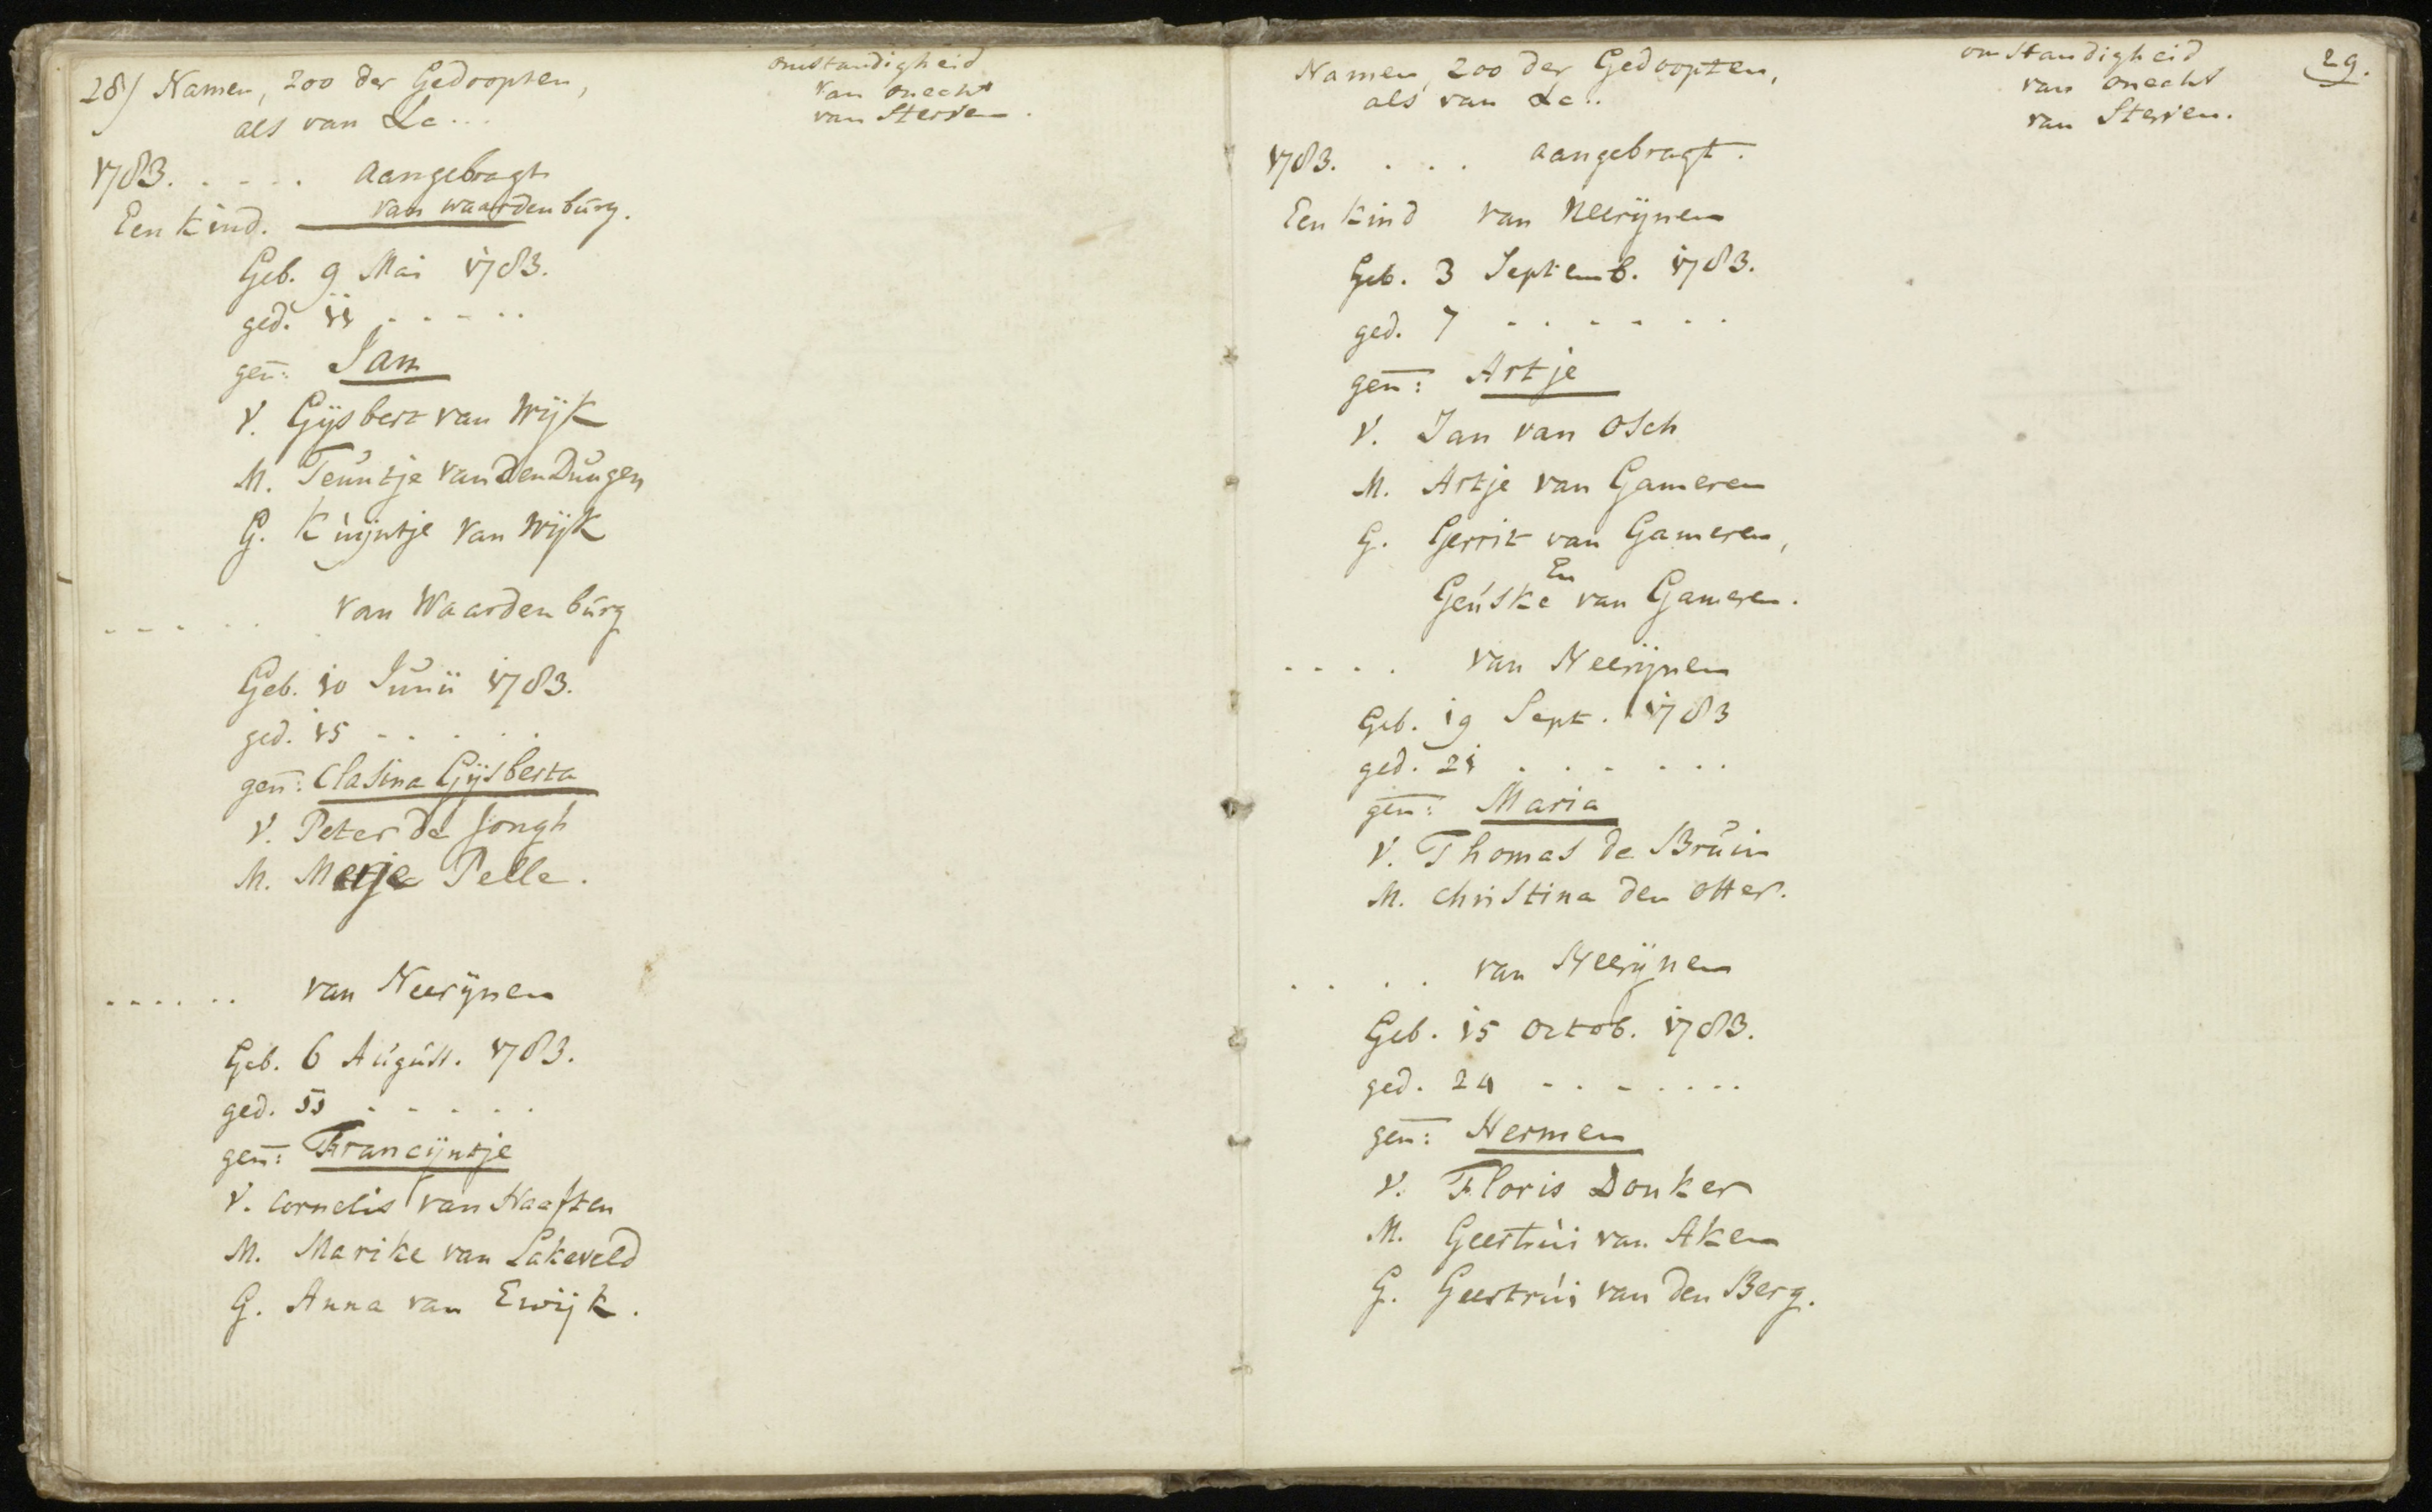 28) Namen, zoo der Gedoopten,
als van &c...
omstandigheid
van onecht
van Sterven.
1783. . . . . aangebragt
Een kind. van waardenburg.
Geb. 9 Mai 1783.
ged. 11 . . . . .
gen: Jan
V. Gÿsbert van Wÿk
M. Teuntje van den Dungen
G. Kuÿntje van Wÿk
. . . . . van Waardenburg
Geb. 10 Junii 1783.
ged. 15 . . . . .
gen: Clasina Gÿsberta
V. Peter de Jongh
M. Metje Pelle.
. . . . . . van Neerÿnen
Geb. 6 August. 1783.
ged. . . . . .
gen: Francÿntje
V. Cornelis van Haaften
M. Marike van Lakeveld
G. Anna van Ewÿk.
Namen, zoo der Gedoopten,
als van &c..
omstandigheid
van onecht
van Sterven.
29.
1783. . . . aangebragt.
Een kind van Neerÿnen
Geb. 3 Septemb. 1783.
ged. 7 . . . . . .
gen: Artje
V. Jan van Osch
M. Artje van Gameren
G. Gerrit van Gameren,
En
Geuske van Gameren.
. . . . van Neerÿnen
Geb. 19 Sept. 1783
ged. 21 . . . . . .
gen: Maria
V. Thomas de Bruin
M. Christina den Otter.
. . . . van Neerÿnen
Geb. 15 Octob. 1783.
ged. 24 . . . . . . .
gen: Hermen
V. Floris Donker
M. Geertrui van Aken
G. Geertrui van den Berg.